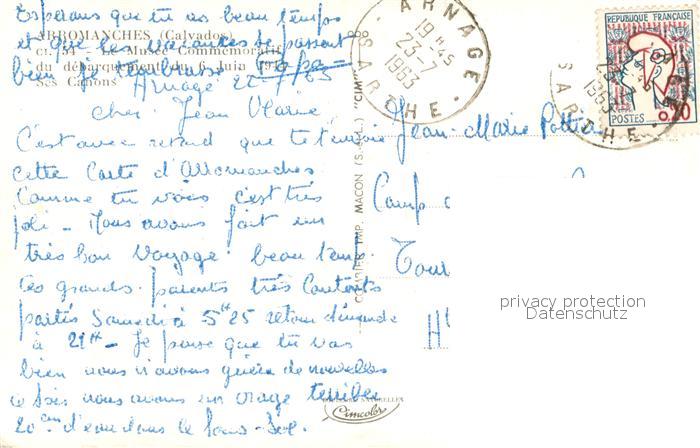 Espérons que tu as beau temps
et que les vacances se passent
bien je t'embrasse
ARROMANCHES (Calvados)
ct. 54 - Musée Commémoratif
du débarquement du 6 Juin 1944
Ses Canons
Arnage 22-7-63
Cher Jean Marie
C'est avec retard que je t'envoie
cette Carte d'Arromanches
Comme tu vois c'est très
joli - Nous avons fait un
très bon voyage beau temps.
tes grands-parents très contents
partis Samedi à 5h 25 retour dimanche
à 21h - Je pense que tu vas
bien nous n'avons guère de nouvelles
ce soir nous avons un orage terrible
20 cm d'eau dans le sous-sol.
COMBIER IMP. MACON (S.-&-L.) "CIM"
COULEURS NATURELLES
Cimcolor
ARNAGE
19 H 45
23-7
1963
SARTHE
REPUBLIQUE FRANÇAISE
POSTES 0,20
1963
SARTHE
Jean-Marie
Camp
Tour
privacy protection
Datenschutz